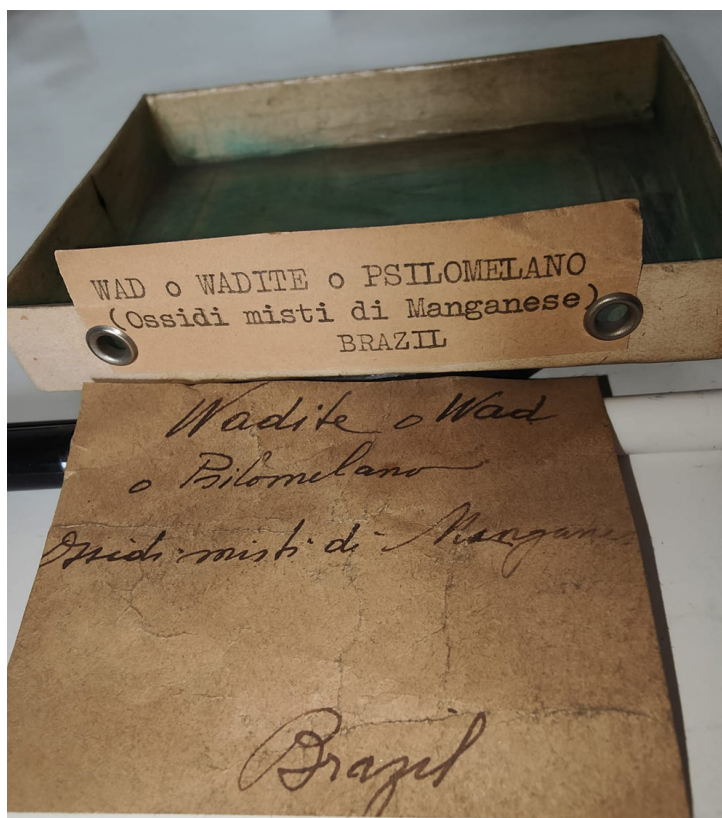 WAD o WADITE o PSILOMELANO
(Ossidi misti di Manganese)
BRAZIL
Wadite o Wad
o Psilomelano
Ossidi misti di Manganese
Brazil